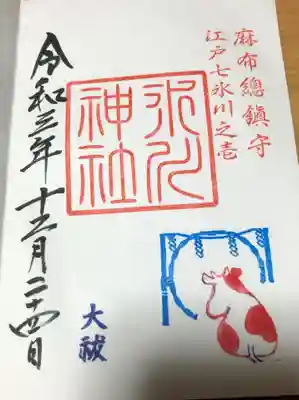 麻布總鎮守
江戸七氷川之壱
氷川神社
令和三年十二月二十四日
大祓